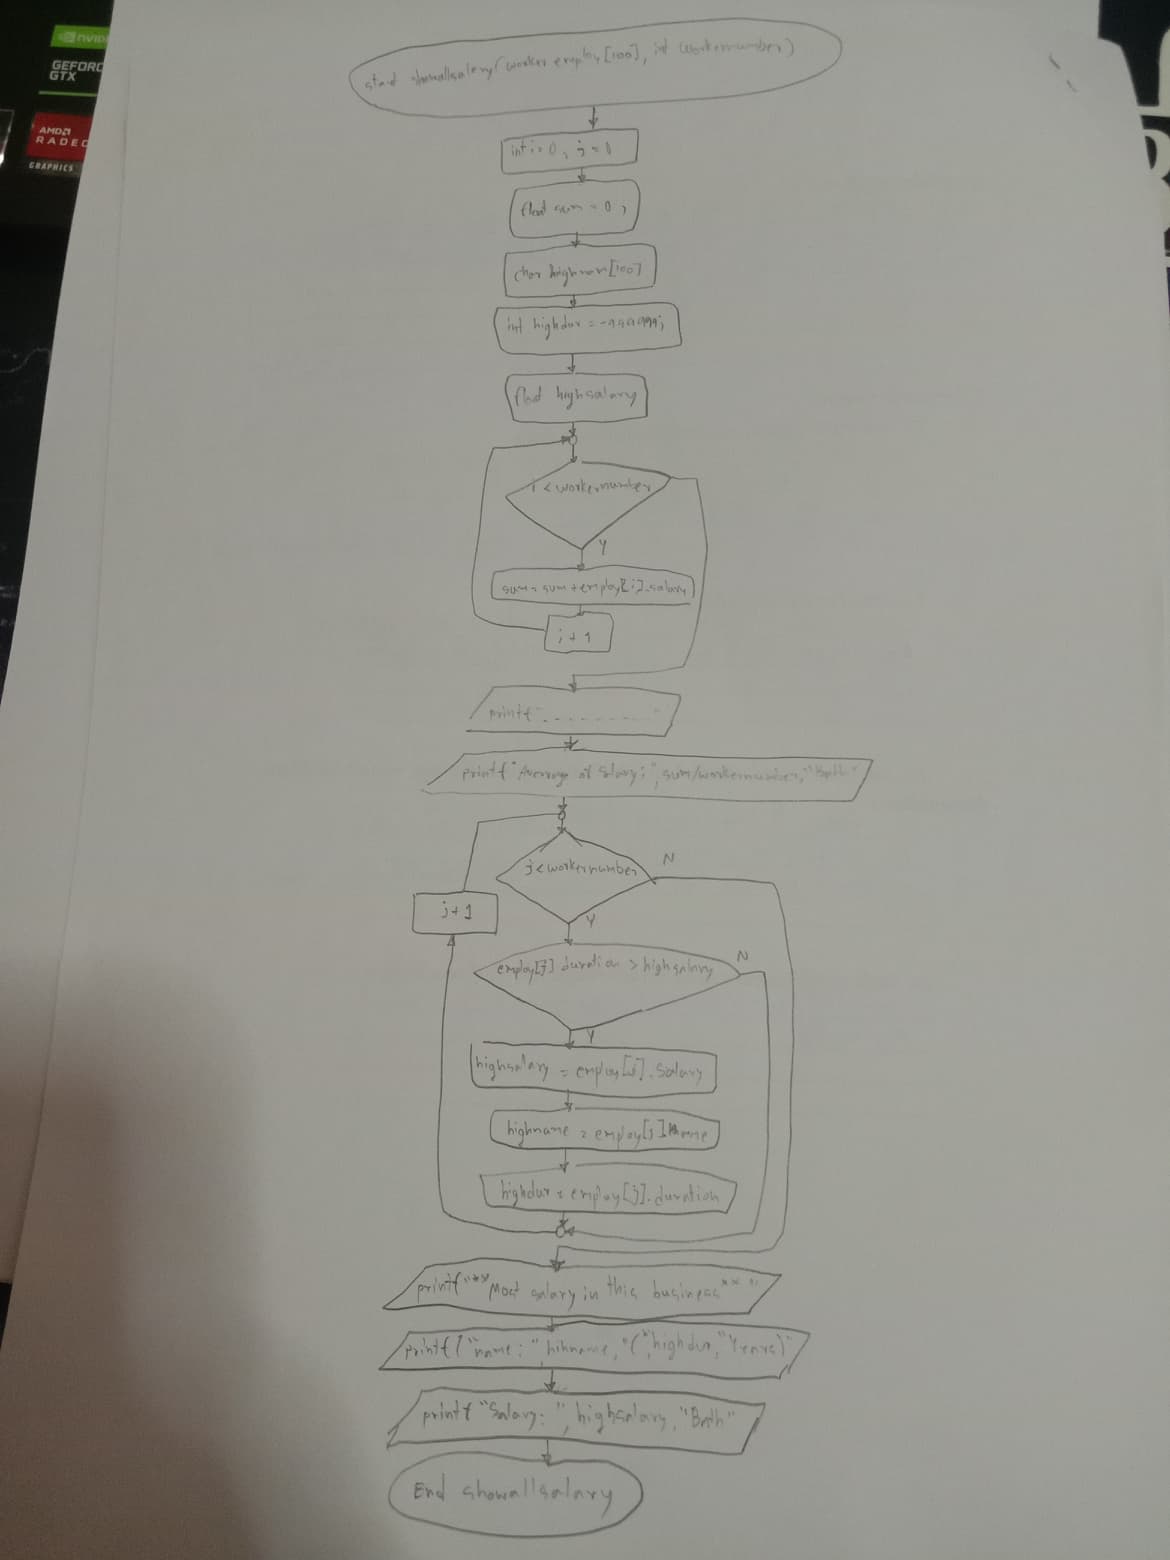 NVIDIA
GEFORCE
GTX
AMD
RADEO
GRAPHICS
start showallsalery(worker employ[100], int workernumber)
int i=0, j=0
float sum = 0;
char highnam[100]
int highdur = -999999;
float highsalary
i < workernumber
Y
sum = sum + employ[i].salary
i+1
printf "- - - - - - - - - "
printf "Average of Salary:", sum/workernumber, "Bath"
j < workernumber
N
j+1
Y
employ[j] duration > highsalary
N
Y
highsalary = employ[j].salary
highname = employ[j].name
highdur = employ[j].duration
printf "** Most salary in this business ** "
printf("name:", hihname, "(", highdur, "Years)"
printf "Salary:", highsalary, "Bath"
End showallsalary